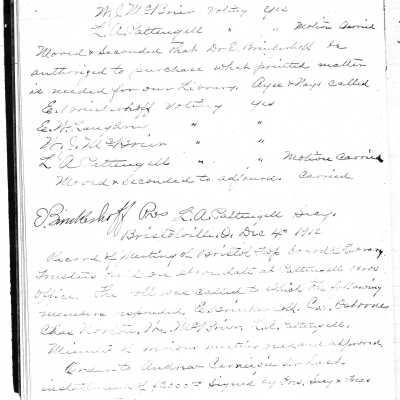 W. E. McBrien Voting Yes
L. A. Pattengell " " Motion Carried
Moved & Seconded that Dr E Brinkerhoff be
authorized to purchase what printed matter
is needed for our Library. Ayes & Nays called
E. Brinkerhoff Voting Yes
E. W. " "
W. E. McBrien " "
L. A. Pattengell " " Motion Carried
Moved & Seconded to adjourn. Carried
O Brinkerhoff Pres L. A. Pattengell Secy.
Bristolville, O. Dec 4th 1912
Record of Meeting of Bristol Top Library
Trustees held on above date at Pattengell
office. The roll was called to which the following
members responded. E. Brinkerhoff.
Chas W. McBrien, L. A. Pattengell.
Minutes of previous meeting read and approved
Order to Andrew Carnegie for last
installment of $2000.00 signed by Pres, Secy &